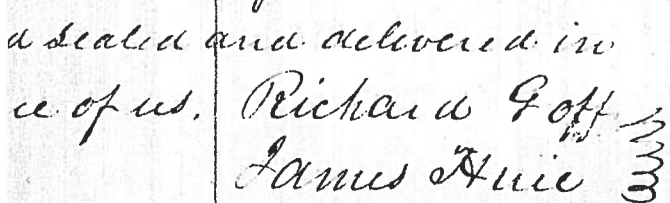 d sealed and delivered in
ce of us. Richard Goff
James Huie